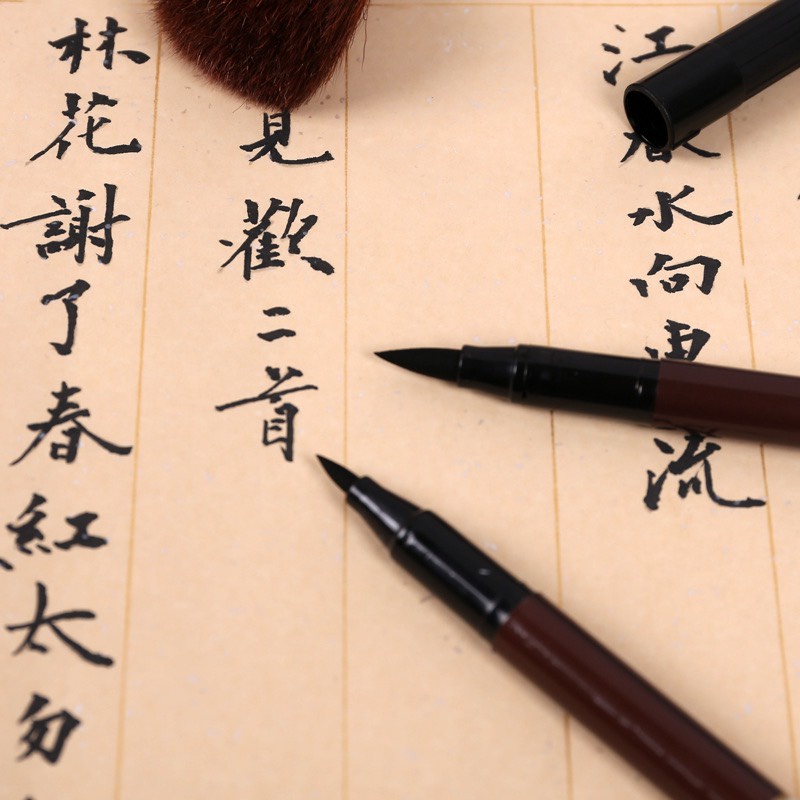 江春水向東流
見歡二首
林花謝了春紅太匆